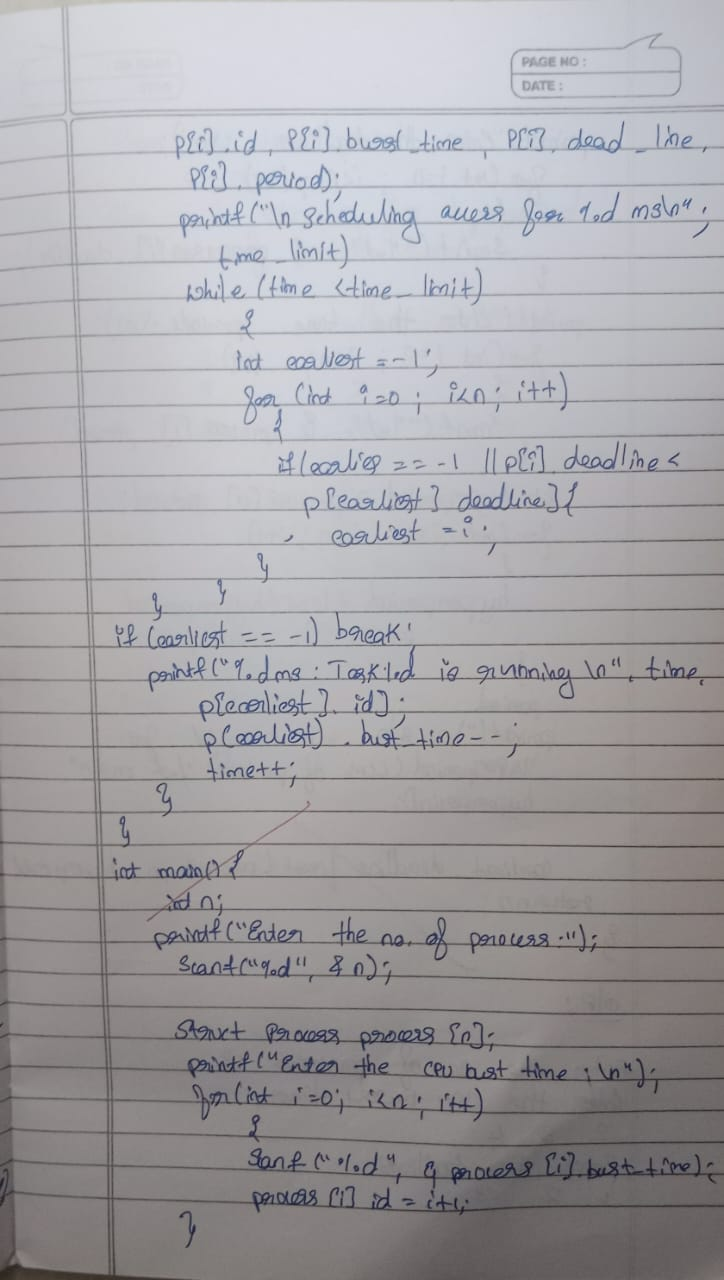 PAGE NO :
DATE :
P[i].id, P[i].burst_time, P[i].dead_line,
P[i].period);
printf("\n Scheduling for %d ms\n";
time_limit)
while (time <time_limit)
{
int earliest =-1;
for (int i=0; i<n; i++)
{
if(earlies == -1 || p[i].deadline <
p[earliest].deadline){
earliest = i;
}
}
}
if (earliest == -1) break;
printf("%dms: Task%d is running \n", time,
p[earliest].id);
p(earliest).bust_time--;
time++;
}
}
int main(){
int n;
printf("Enter the no. of process:");
Scanf("%d", &n);
Struct Process process [n];
printf("Enter the CPU bust time ; \n");
for(int i=0; i<n; i++)
{
Sanf("%d", & process [i].bust_time);
process [i] id = i+1;
}